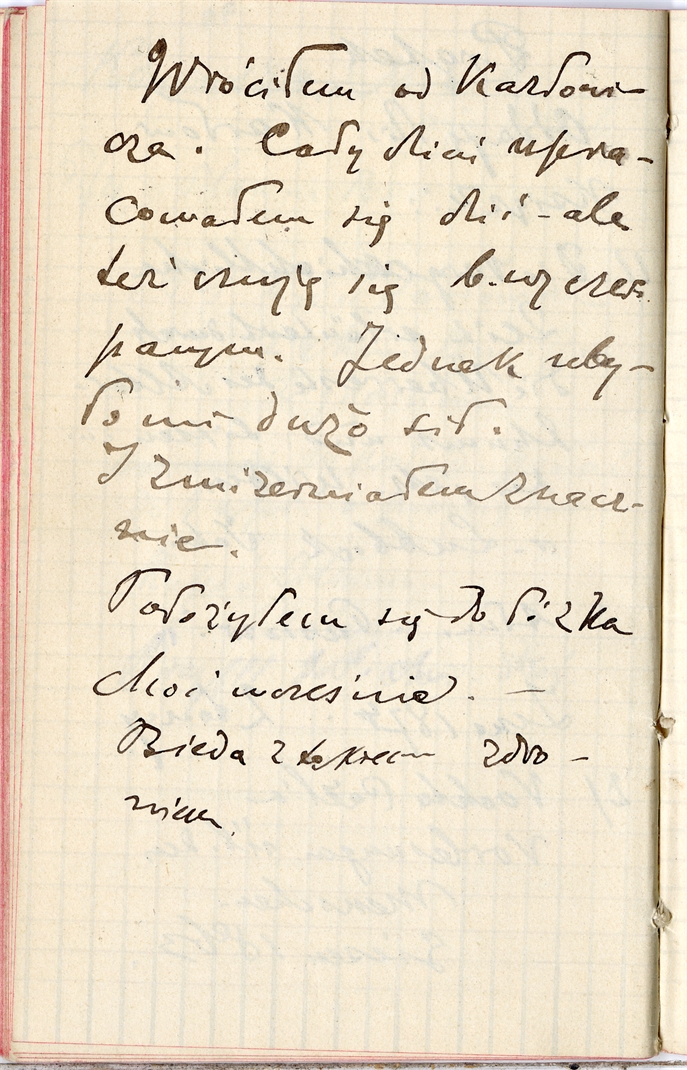 Wróciłem od Karłowi-
cza. Cały dzień napra-
cowałem się dziś - ale
też czuję się b. wyczer-
panym. Jednak uby-
ło mi dużo sił.
Izmizerniałem znacz-
nie.
Położyłem się do łóżka
choć wcześnie. —
Bieda z takiem zdro-
wiem.